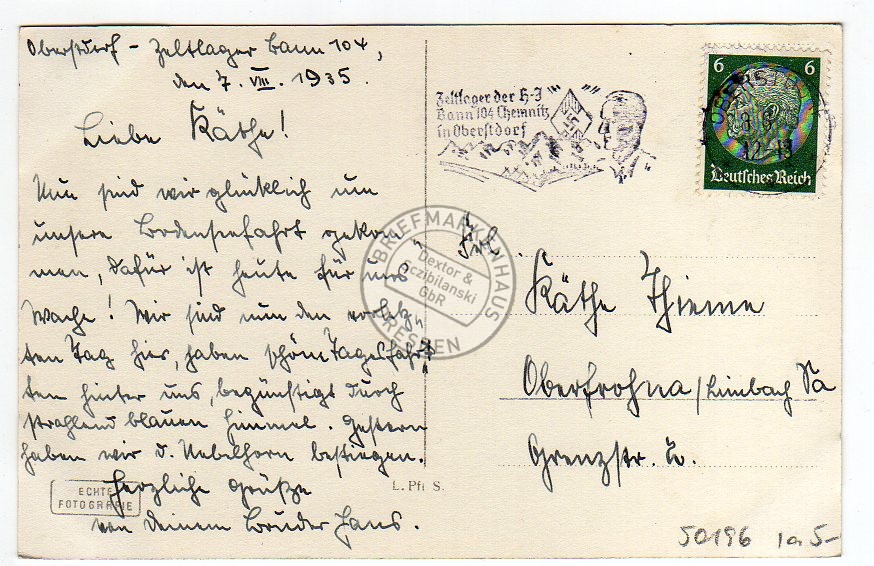 Oberstdorf – Zeltlager Bann 104,
den 7. VIII. 1935.
Liebe Käthe!
Nun sind wir glücklich um
unsere Bodenseefahrt gekom=
men, dafür ist heute für uns
Wache! Wir sind nun den vorletz=
ten Tag hier, haben schöne Tagesfahrt
ten hinter uns, begünstigt durch
strahlend blauen Himmel. Gestern
haben wir d. Nebelhorn bestiegen.
Herzliche Grüße
von Deinem Bruder Hans.
ECHTE
FOTOGRAFIE
L. Pfr S.
Zeltlager der H-J
Bann 104 Chemnitz
in Oberstdorf
6 6
Deutsches Reich
OBERSTDORF
12-13
BRIEFMARKENHAUS
Dextor &
Sczibilanski
GbR
DRESDEN
Frl.
Käthe Thieme
Oberfrohna / Limbach Sa
Grenzstr. 2.
50196 1a 5-